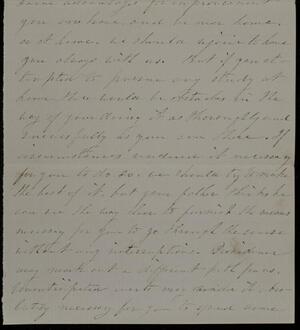 same advantages for improvement
you now have, and be near home,
or at home. We should rejoice to have
you always with us. But if you at-
tempted to pursue any study at
home there would be obstacles in the
way of your doing it as thoroughly and
successfully as you can there. If
circumstances rendered it necessary
for you to do so, we should try to make
the best of it, but your father thinks he
can see the way clear to furnish the means
necessary for you to go through the course
without any interruption. Providence
may mark out a different path for us.
events may make it
necessary for you to spend some